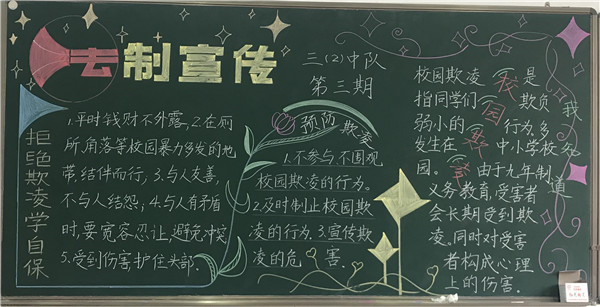 去制宣传
三(2)中队
第三期
拒绝欺凌学自保
1.平时钱财不外露,2.在厕
所,角落等校园暴力多发的地
带结伴而行,3.与人友善,
不与人结怨;4.与人有矛盾
时,要宽容忍让,避免冲突
5.受到伤害护住头部.
预防欺凌
1.不参与,不围观
校园欺凌的行为。
2.及时制止校园欺
凌的行为.3.宣传欺
凌的危害.
校园欺凌是
指同学们欺负
弱小的行为,多
发生在中小学校
园。由于九年制
义务教育,受害者
会长期受到欺
凌,同时对受害
者构成心理
上的伤害.
校园欺凌
我
知
道